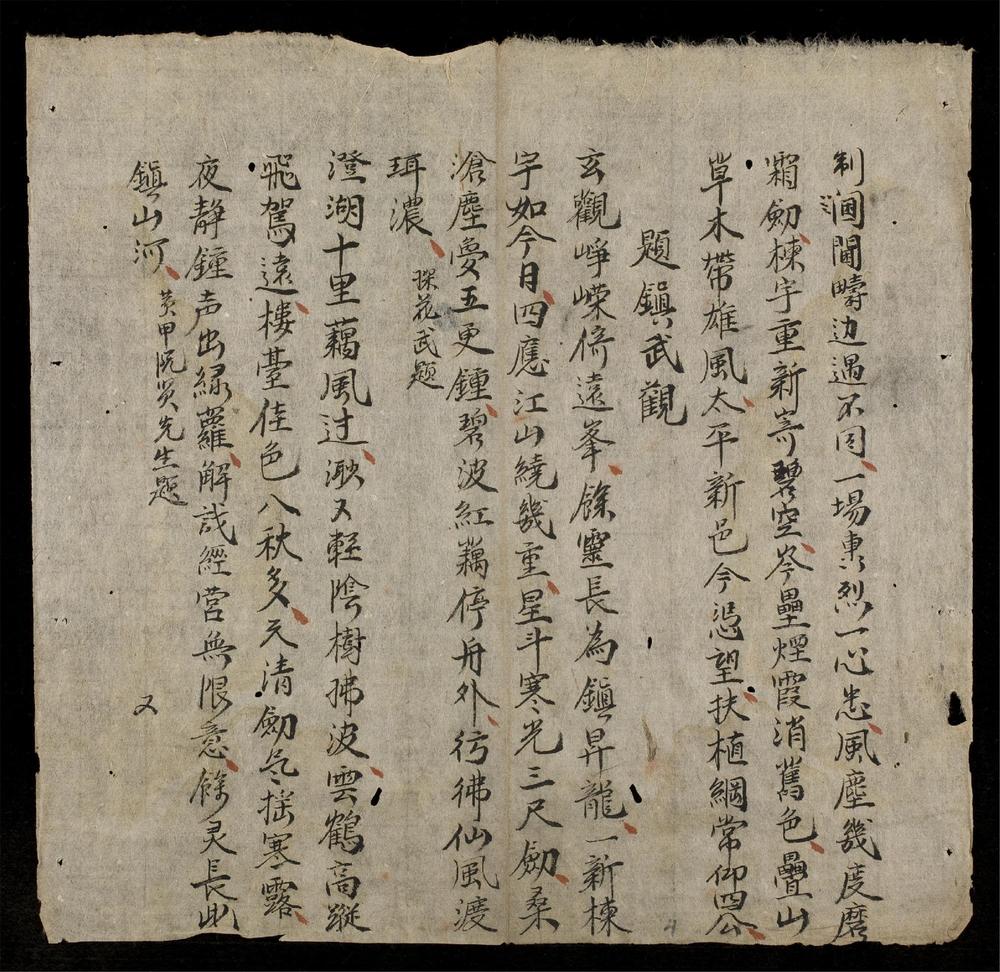 制涸間疇边遇不同一場惠烈一心忠風塵幾度磨
霜劍棟宇重新寄碧空岑壘煙霞消舊色疊山
草木帶雄風太平新邑今憑望扶植綱常仰四公
題鎮武觀
玄觀崢嶸倚遠峯餘靈長為鎮昇龍一新棟
宇如今日四應江山繞幾重星斗寒光三尺劍桑
滄塵夢五更鐘碧波紅藕停舟外彷彿仙風渡
珥濃 探花武題
澄湖十里藕風过漱又輕陰樹拂波雲鶴高蹤
飛駕遠樓臺佳色八秋多天清劍氣搖寒露
夜靜鐘声出綠蘿解識經營無限意餘灵長此
鎮山河 黄甲阮 先生題
又